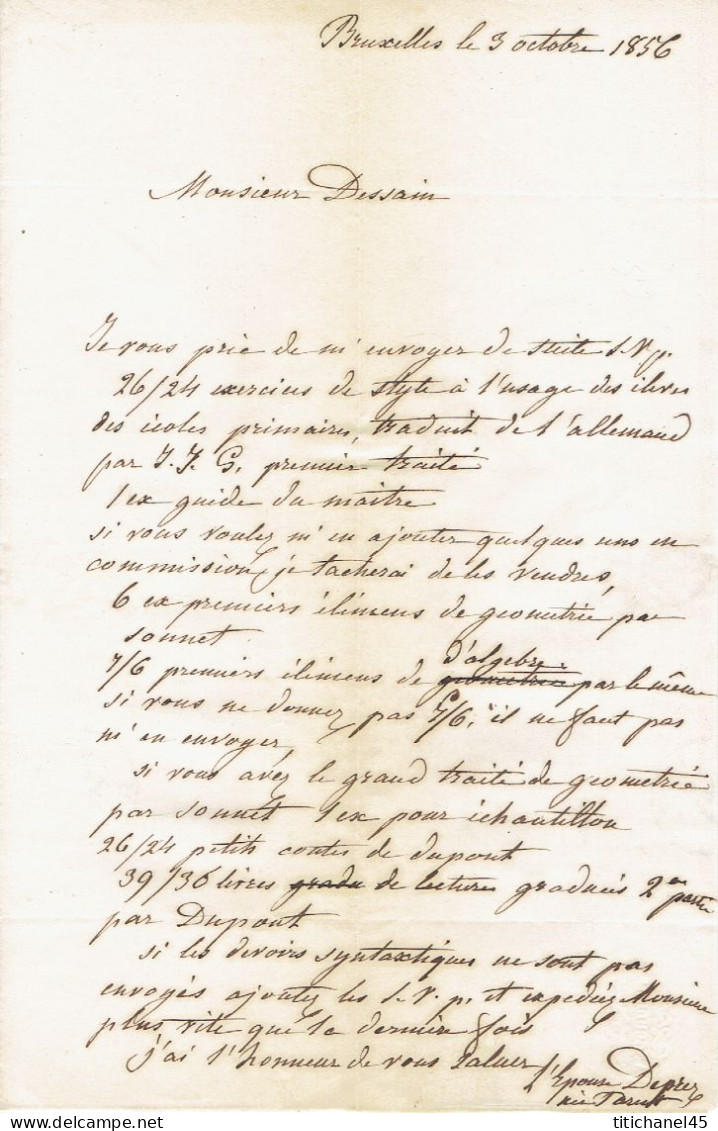 Bruxelles le 3 octobre 1856
Monsieur Dessain
Je vous prie de m'envoyer de suite s.v.p.
26/24 exercices de style à l'usage des élèves
des écoles primaires, traduit de l'allemand
par J. J. G. premier traité
1 ex guide du maitre
si vous voulez m'en ajouter quelques uns en
commission, je tacherai de les vendres,
6 ex premiers élémens de geometrie par
sonnet
7/6 premiers élémens de d'algebre geometrie par le même
si vous ne donnez pas 7/6, il ne faut pas
m'en envoyer,
si vous avez le grand traité de geometrie
par sonnet 1 ex pour échantillon
26/24 petits contes de dupont
39/36 livres gradu de lectures gradués 2me partie
par Dupont
si les devoirs syntaxtiques ne sont pas
envoyés ajoutez les s.v.p. et expediez Monsieur
plus vite que la dernier fois
j'ai l'honneur de vous saluer
L'Epouse Deprez
née
titichanel45